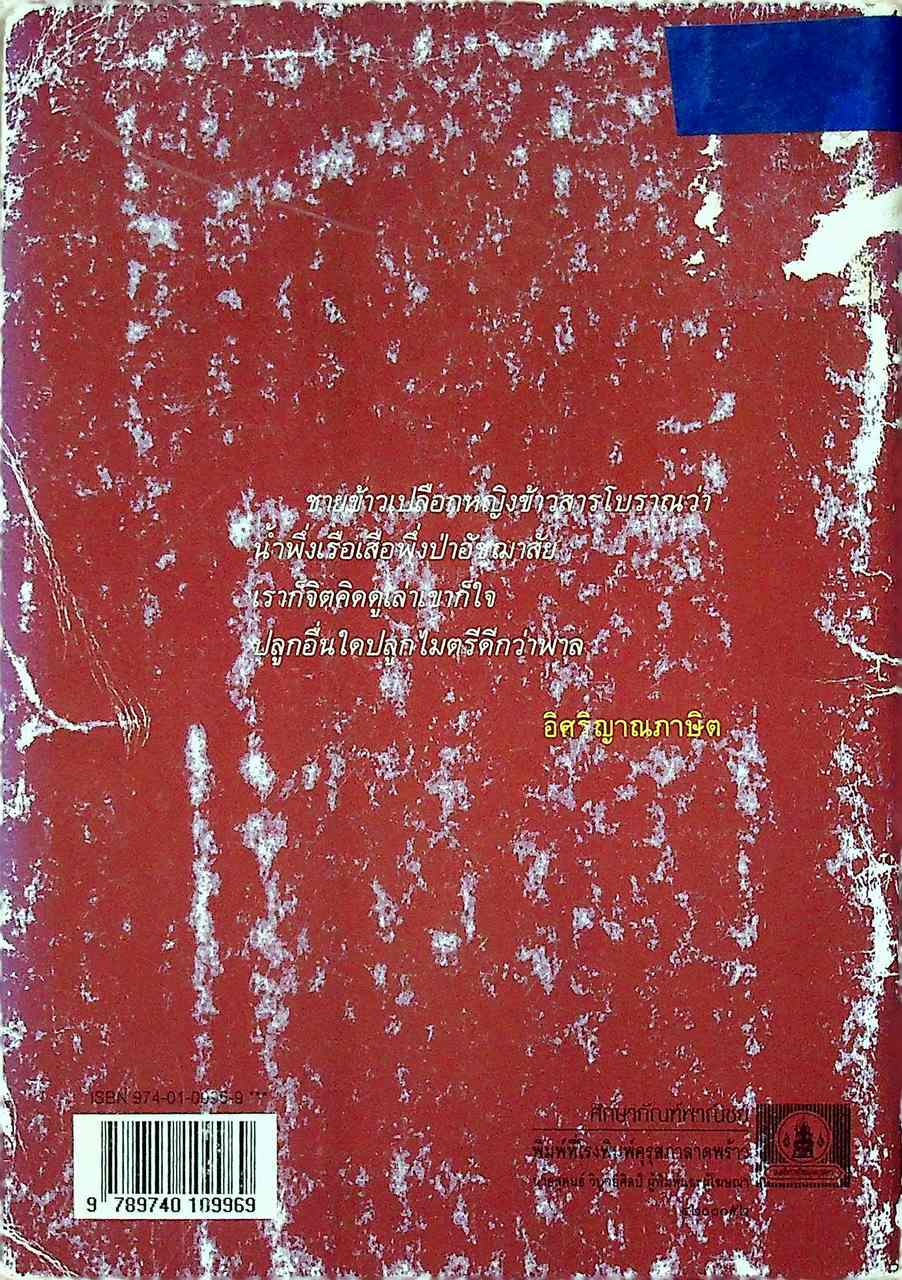 ชายข้าวเปลือกหญิงข้าวสารโบราณว่า
น้ำพึ่งเรือเสือพึ่งป่าอัชฌาสัย
เราก็จิตคิดดูเล่าเขาก็ใจ
ปลูกอื่นใดปลูกไมตรีดีกว่าพาล
อิศริญาณภาษิต
ISBN 974-01-0996-9
9 789740 109969
ศึกษาภัณฑ์พาณิชย์
พิมพ์ที่โรงพิมพ์คุรุสภาลาดพร้าว
ผู้พิมพ์และผู้โฆษณา